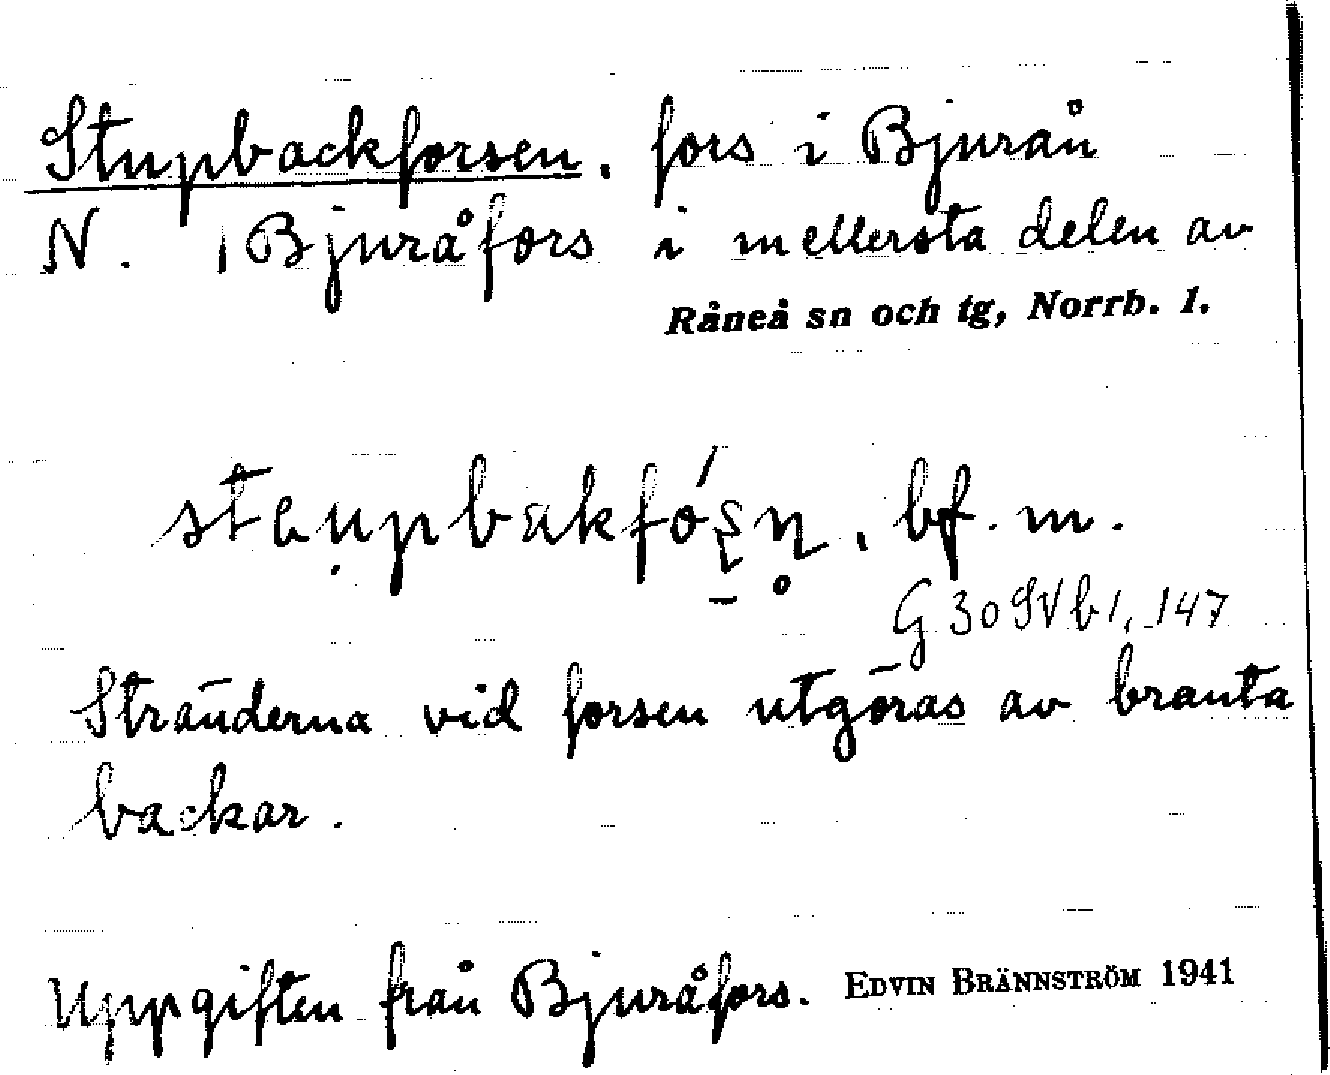 Stupbackforsen. fors i Bjurån
N. i Bjuråfors i mellersta delen av
Råneå sn och tg, Norrb. l.
bf. m.
G 30 SV b 1, 147
Stränderna vid forsen utgöras av branta
backar.
Uppgiften från Bjuråfors. EDVIN BRÄNNSTRÖM 1941